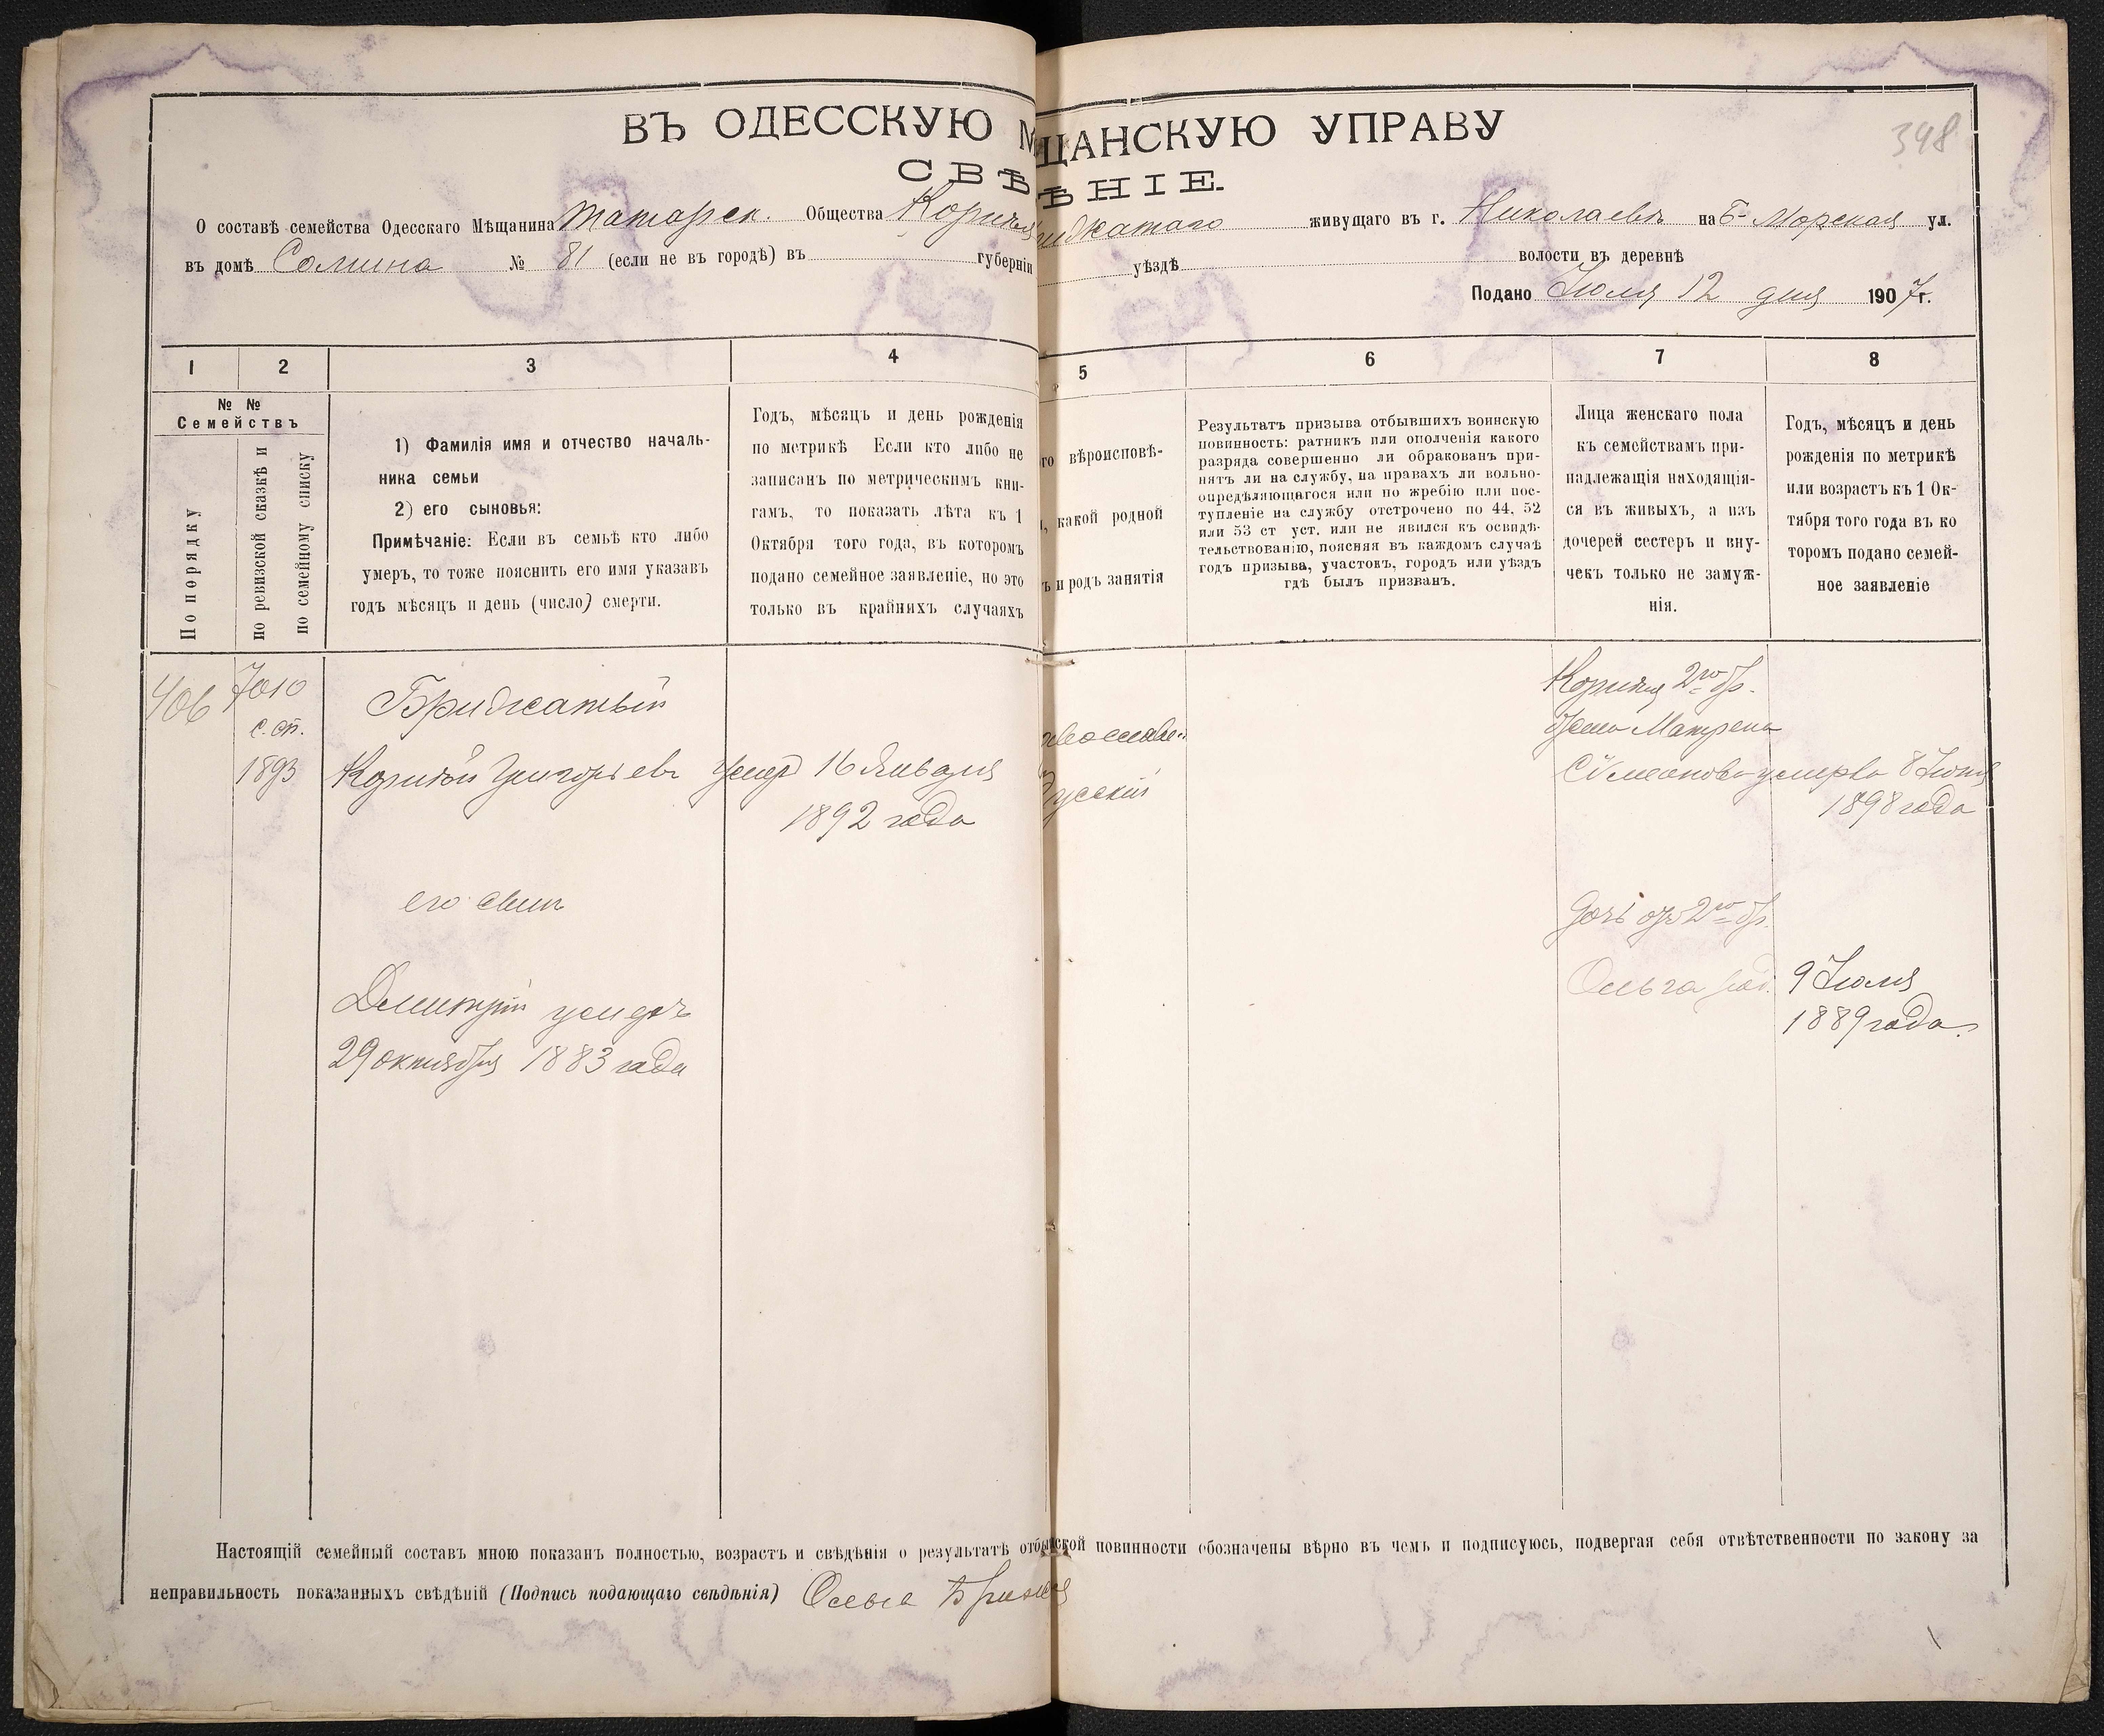 ВЪ ОДЕССКУЮ М ЩАНСКУЮ УПРАВУ
348
СВѢ ѢНІЕ.
О составѣ семейства Одесскаго Мѣщанина Татарск. Общества живущаго въ г. Николаевѣ на Б-Морская ул.
въ домѣ Сомина № 81 (если не въ городѣ) въ губерніи уѣздѣ волости въ деревнѣ
Подано Іюля 12 дня 1907г.
1 2 3 4 5 6 7 8
№ №
Семействъ
По порядку
по ревизской сказкѣ и
по семейному списку
1) Фамилія имя и отчество началь-
ника семьи
2) его сыновья:
Примѣчаніе: Если въ семьѣ кто либо
умеръ, то тоже пояснить его имя указавъ
годъ мѣсяцъ и день (число) смерти.
Годъ, мѣсяцъ и день рожденія
по метрикѣ Если кто либо не
записанъ по метрическимъ кни-
гамъ, то показать лѣта къ 1
Октября того года, въ которомъ
подано семейное заявленіе, но это
только въ крайнихъ случаяхъ
го вѣроисповѣ-
, какой родной
ъ и родъ занятія
Результатъ призыва отбывшихъ воинскую
повинность: ратникъ или ополченія какого
разряда совершенно ли обракованъ при-
нятъ ли на службу, на правахъ ли вольно-
опредѣляющагося или по жребію или пос-
тупленіе на службу отстрочено по 44, 52
или 53 ст уст. или не явился къ освидѣ-
тельствованію, поясняя въ каждомъ случаѣ
годъ призыва, участокъ, городъ или уѣздъ
гдѣ былъ призванъ.
Лица женскаго пола
къ семействамъ при-
надлежащія находящія-
ся въ живыхъ, а изъ
дочерей сестеръ и вну-
чекъ только не замуж-
нія.
Годъ, мѣсяцъ и день
рожденія по метрикѣ
или возрастъ къ 1 Ок-
тября того года въ ко
торомъ подано семей-
ное заявленіе
406 7010
с. сп.
1893
Бриджатый
Корнѣй Григорьевъ умеръ 16 Января
1892 года
его сынъ
Дмитрій умеръ
29 октября 1883 года
вослав.
усскій
Корнѣя 2го бр.
жена Матрена
Симеонова умерла 8 Іюня
1898 года
дочь отъ 2го бр.
Ольга род. 9 Іюля
1889 года.
Настоящій семейный составъ мною показанъ полностью, возрастъ и свѣдѣнія о результатѣ отбы ской повинности обозначены вѣрно въ чемъ и подписуюсь, подвергая себя отвѣтственности по закону за
неправильность показанныхъ свѣдѣній (Подпись подающаго свѣдѣнія) Ольга